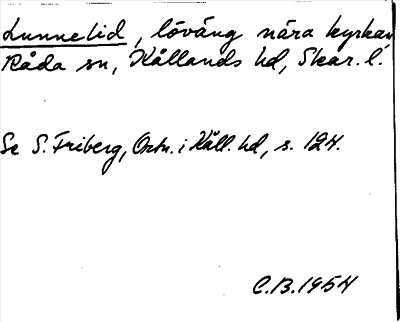 Lunnelid, löväng nära kyrkan,
Råda sn, Kållands hd, Skar. l.
Se S. Friberg, Ortn. i Kåll. hd, s. 124.
C.B. 1954